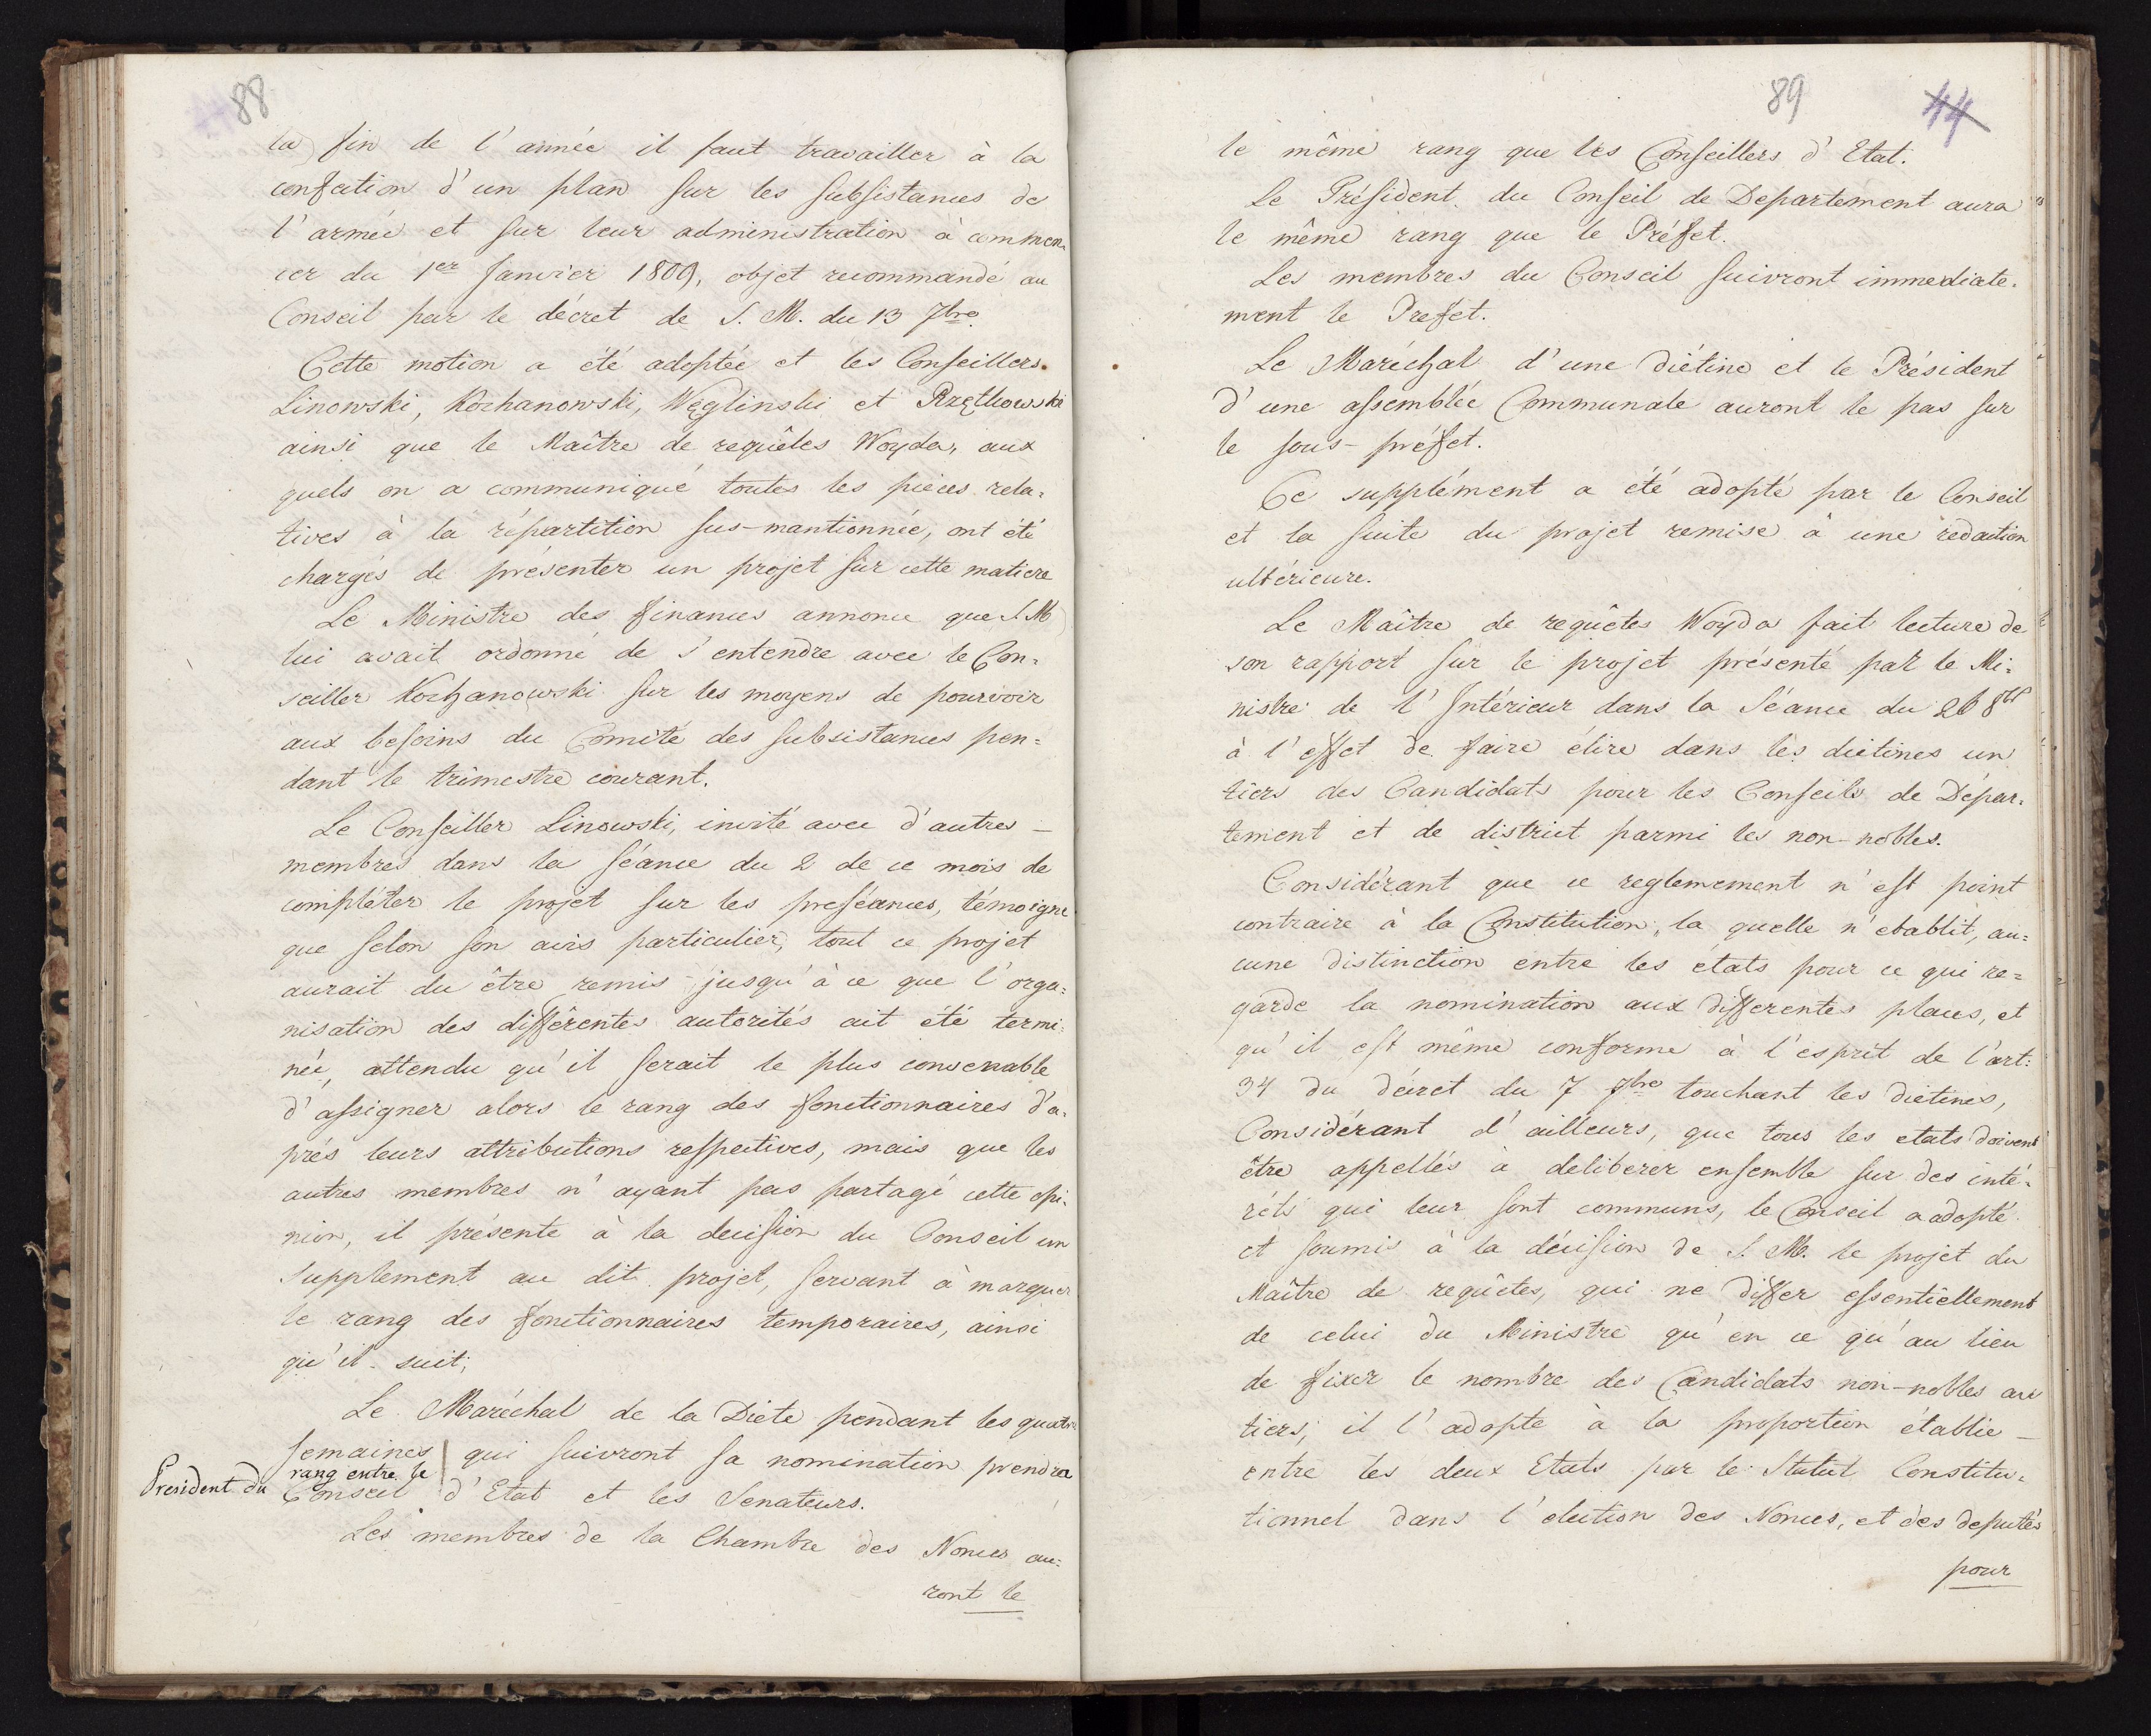 88
la fin de l'année il faut travailler à la
confection d'un plan sur les subsistances de
l'armée et sur leur administration à commen=
cer du 1er Janvier 1809, objet recommandé au
Conseil par le décret de S. M. du 13 7bre.
Cette motion a été adoptée et les Conseillers
Linowski, Kochanowski, Węglinski et Rzętkowski
ainsi que le Maître de requêtes Woyda, aux
quels on a communiqué toutes les pièces rela=
tives à la répartition sus-mantionnée, ont été
chargés de présenter un projet sur cette matiere
Le Ministre des finances annonce que S. M
lui avait ordonné de s'entendre avec le Con=
seiller Kochanowski sur les moyens de pourvoir
aux besoins du Comité des subsistances pen=
dant le trimestre courant.
Le Conseiller Linowski, invité avec d'autres —
membres dans la séance du 2 de ce mois de
compléter le projet sur les preséances, témoigne
que selon son avis particulier, tout ce projet
aurait du être remis jusqu'à ce que l'orga=
nisation des différentes autorités ait été termi=
née, attendu qu'il serait le plus convenable
d'assigner alors le rang des fonctionnaires d'a=
prés leurs attributions respectives, mais que les
autres membres n'ayant pas partagé cette opi=
nion, il présente à la decision du Conseil un
Supplement au dit projet, servant à marquer
le rang des fonctionnaires temporaires, ainsi
qu'il suit;
Le Maréchal de la Diéte pendant les quatre
semaines qui suivront sa nomination prendra
rang entre le
President du Conseil d'Etat et les Senateurs.
Les membres de la Chambre des Nonces au=
ront le
89
44
le même rang que les Conseillers d'Etat.
Le Président du Conseil de Departement aura
le même rang que le Préfet.
Les membres du Conseil suivront immediate=
ment le Prefet.
Le Maréchal d'une diétine et le Président
d'une assemblée Communale auront le pas sur
le sous-préfet.
Ce supplément a été adopté par le Conseil
et la suite du projet remise à une redaction
ultérieure.
Le Maître de requêtes Woyda fait lecture de
son rapport sur le projet présenté par le Mi=
nistre de l'Intérieur dans la Séance du 26 8br
à l'effet de faire élire dans les diétines un
tiers des Candidats pour les Conseils de Dépar=
tement et de district parmi les non-nobles.
Considérant que ce reglemement n'est point
contraire à la Constitution, la quelle n'etablit, au=
cune distinction entre les états pour ce qui re=
garde la nomination aux differentes places, et
qu'il est même conforme à l'esprit de l'art:
34 du décret du 7 7bre touchant les diétines,
Considérant d'ailleurs, que tous les etats doivent
être appellés à deliberer ensemble sur des inté=
réts qui leur sont communs, le Conseil a adopté
et soumis à la décision de S. M. le projet du
Maître de requêtes, qui ne differ essentiellement
de celui du Ministre qu'en ce qu'au lieu
de fixer le nombre des Candidats non-nobles au
tiers; il l'adopte à la proportion établie —
entre les deux Etats par le Statut Constitu=
tionnel dans l'election des Nonces, et des deputés
pour